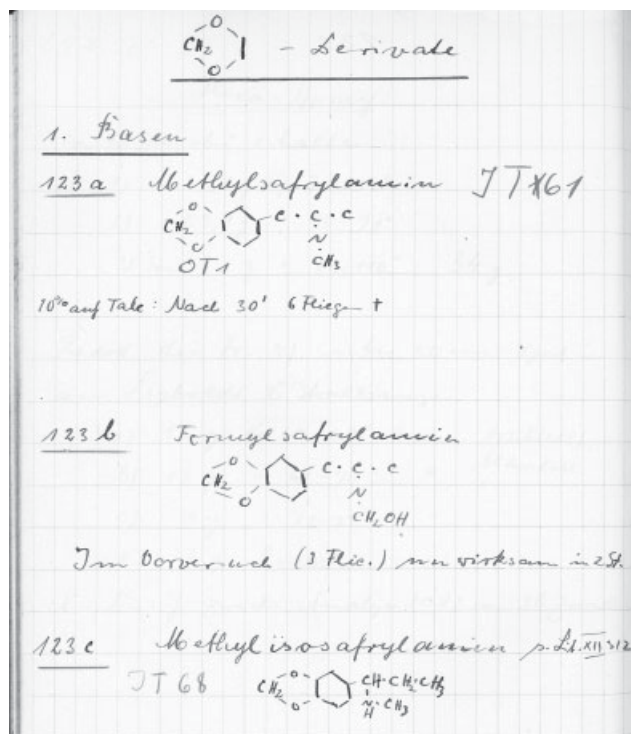 O
CH2 - Derivate
O
1. Basen
123a Methylsafrylamin JT 61
O
CH2 C · C · C
O N
OT1 CH3
10% auf Talk: Nach 30' 6 Fliegen †
123b Formylsafrylamin
O
CH2 C · C · C
O N
CH2OH
Im Vorversuch (3 Flie.) nur wirksam in 2 St.
123c Methylisosafrylamin s. Lit. XII
JT 68 CH2 O CH·CH2·CH3
O N·CH3
H